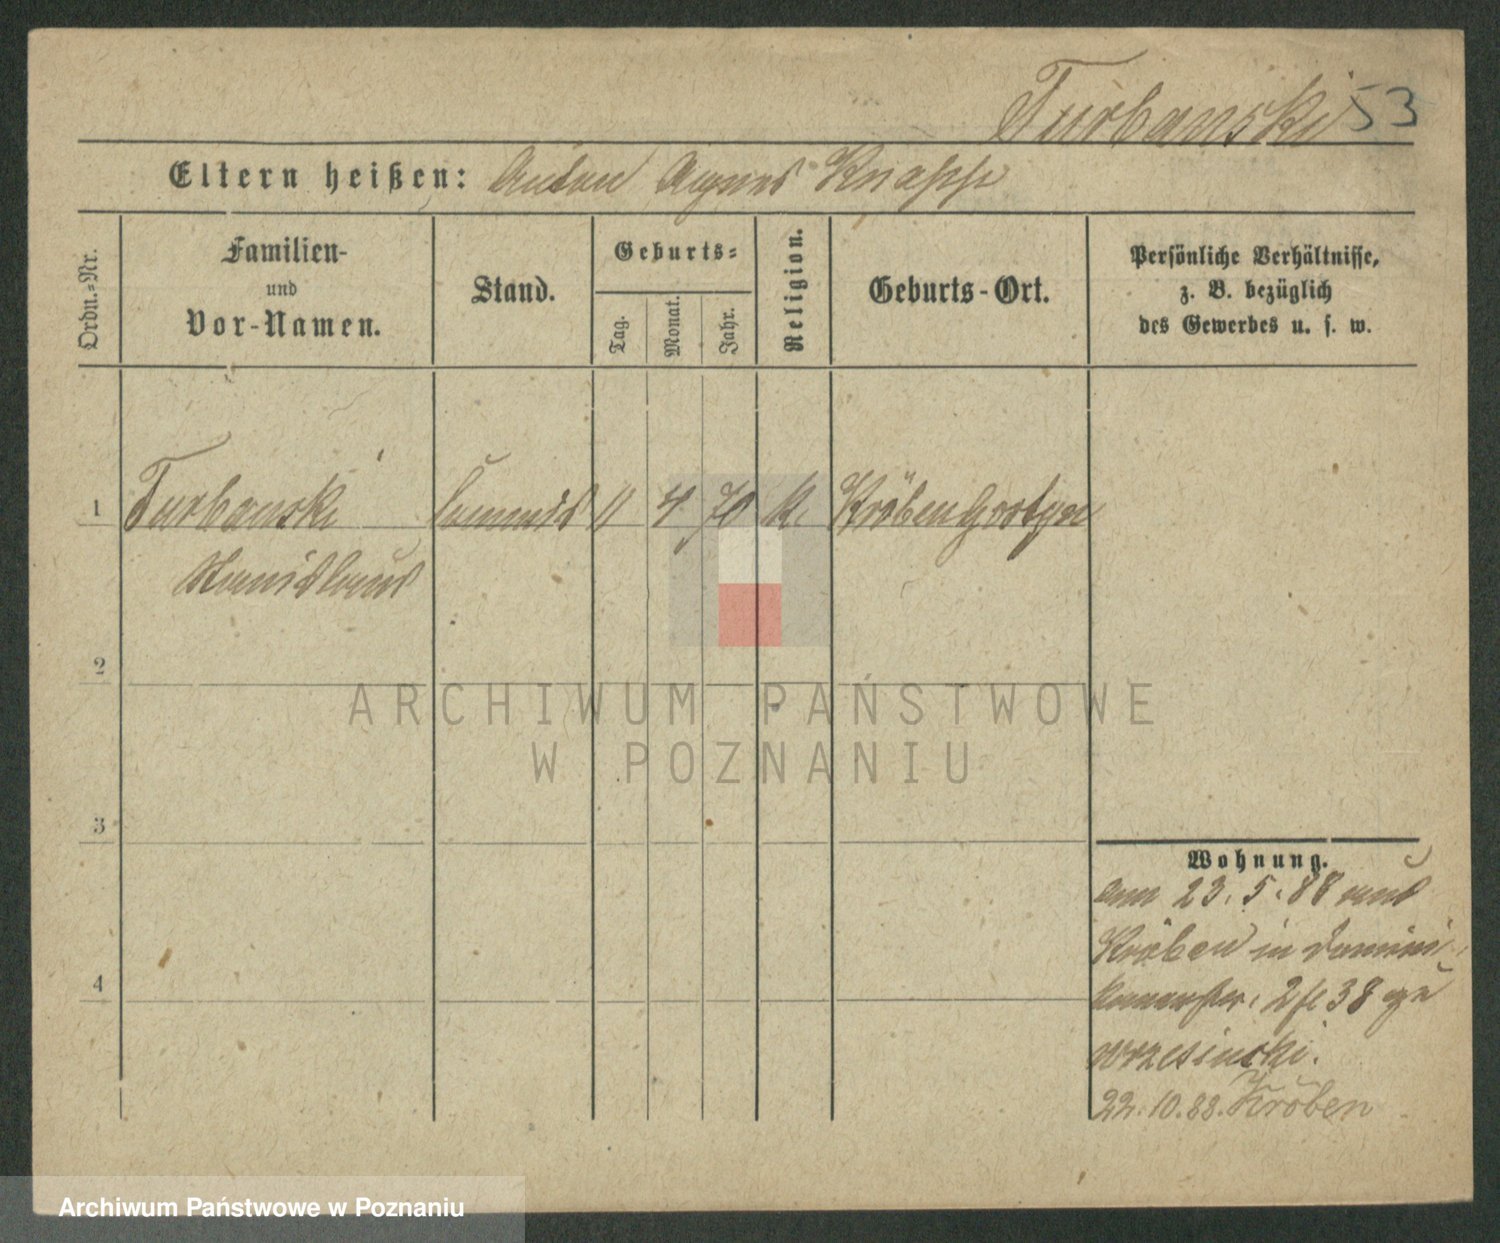 Turbanski 53
Eltern heißen: Anton Agnes Knappe
Ordn.-Nr.
Familien-
und
Vor-Namen.
Stand.
Geburts-
Tag.
Monat.
Jahr.
Religion.
Geburts-Ort.
Persönliche Verhältnisse,
z. B. bezüglich
des Gewerbes u. s. w.
1 Turbanski Commis 11 4 70 k. Kröben Gostyn
Stanislaus
2
3
4
Wohnung.
am 23.5.88 aus
Kröben in Domini-
kanerstr. 38 zu
Wrzesinski.
22.10.88. Kröben
ARCHIWUM PAŃSTWOWE
W POZNANIU
Archiwum Państwowe w Poznaniu